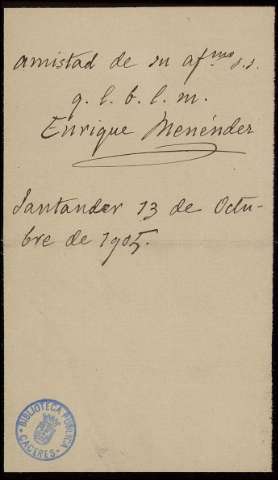 amistad de su af.mo s.s.
q. l. b. l. m.
Enrique Menéndez
Santander 13 de Octu-
bre de 1905.
BIBLIOTECA PUBLICA
CACERES